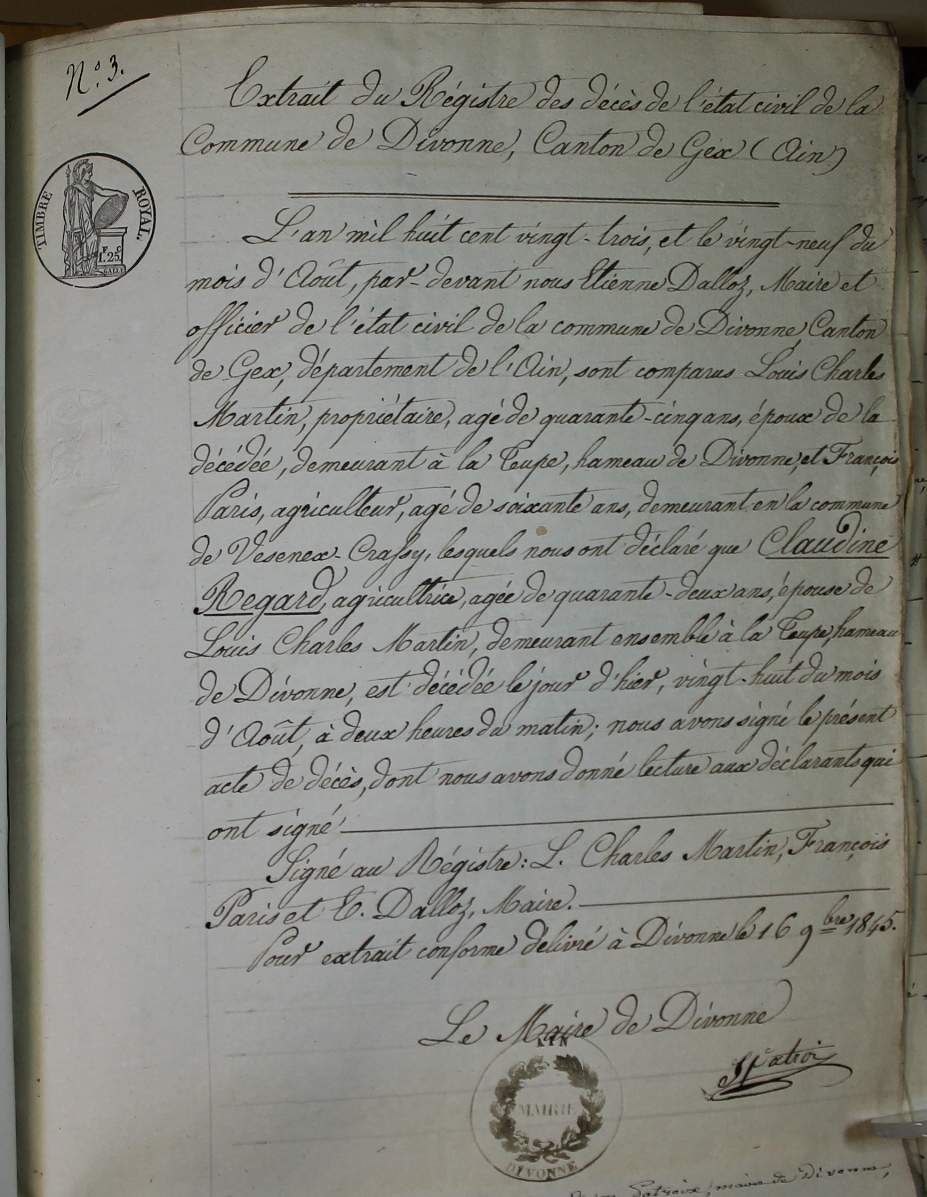 N.º 3.
Extrait du Régistre des décès de l'état civil de la
Commune de Divonne, Canton de Gex (Ain)
TIMBRE ROYAL.
1.F 25.C
L'an mil huit cent vingt-trois, et le vingt-neuf du
mois d'Août, par-devant nous Etienne Dalloz, Maire et
officier de l'état civil de la commune de Divonne, Canton
de Gex, département de l'Ain, sont comparus Louis Charles
Martin, propriétaire, agé de quarante-cinq ans, époux de la
décédée, demeurant à la Teupe, hameau de Divonne, et François
Paris, agriculteur, agé de soixante ans, demeurant en la commune
de Vesenex-Crassy, lesquels nous ont déclaré que Claudine
Regard, agricultrice, agée de quarante-deux ans, épouse de
Louis Charles Martin, demeurant ensemble à la Teupe, hameau
de Divonne, est décédée le jour d'hier, vingt-huit du mois
d'Août, à deux heures du matin; nous avons signé le présent
acte de décès, dont nous avons donné lecture aux déclarants qui
ont signé.
Signé au Régistre: L. Charles Martin, François
Paris et E. Dalloz, Maire.
Pour extrait conforme délivré à Divonne le 16 9bre 1845.
Le Maire de Divonne
AIN
MAIRIE
DIVONNE
maire de Divonne,